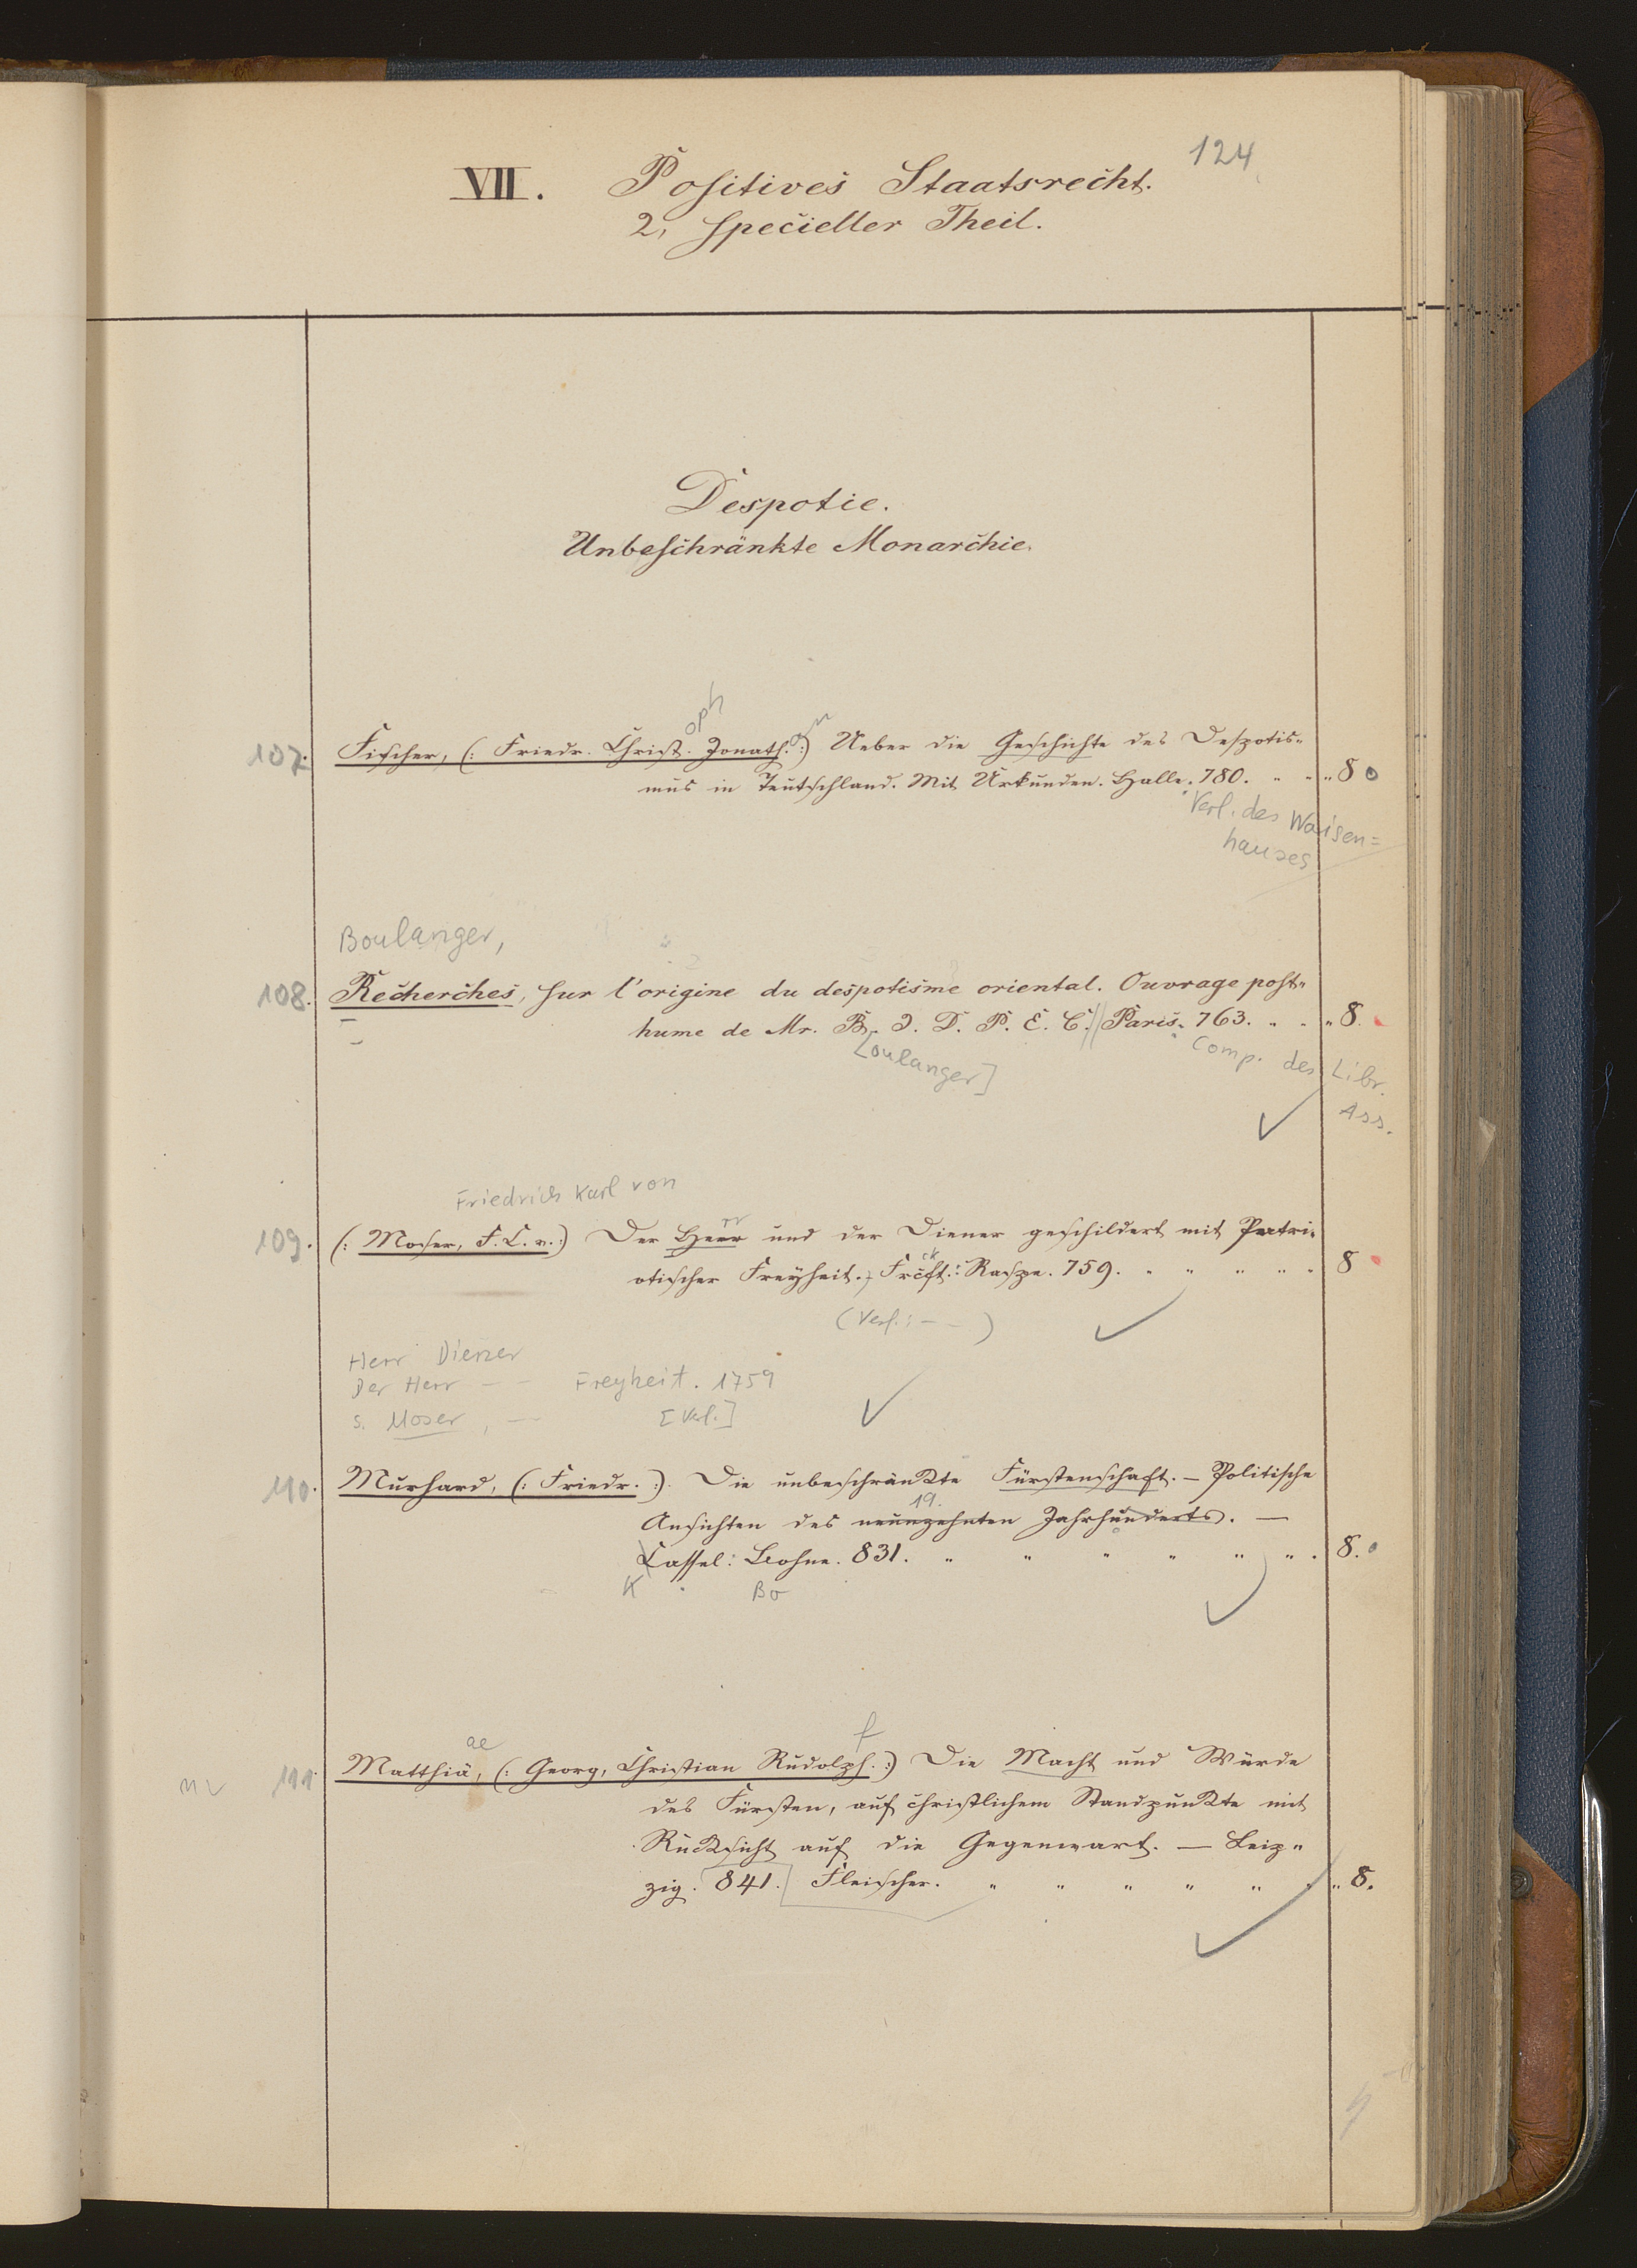 124
VII. Positives Staatsrecht.
2, specieller Theil.
Despotie.
Unbeschränkte Monarchie.
oph
107. Fischer, (: Friedr. Christ. Jonath. :) Ueber die Geschichte des Despotis-
mus in Teutschland. Mit Urkunden. Halle. 780. 8
Verl. des Waisen=
hauses
Boulanger,
108. Recherches, sur l'origine du despotisme oriental. Ouvrage post-
hume de Mr. B. J. D. P. E. C. // Paris. 763. 8.
[oulanger] Comp. des Libr.
Ass.
Friedrich Karl von
rr
109. (: Moser, F. C. v. :) Der Herr und der Diener geschildert mit Patri-
ck
otischer Freyheit. Frcft.: Raspe. 759. 8
(Verf.: - - )
Herr Diener
Der Herr - - Freyheit. 1759
s. Moser, - [Verf.]
110. Murhard, (: Friedr. :). Die unbeschränkte Fürstenschaft. - Politische
19.
Ansichten des neunzehnten Jahrhunderts. -
Cassel: Bohne. 831. 8.
K Bo
ae f
111. Matthiä, (: Georg, Christian Rudolph. :) Die Macht und Würde
des Fürsten, auf christlichem Standpunkte mit
Rücksicht auf die Gegenwart. - Leip-
zig. 841. Fleischer. 8.